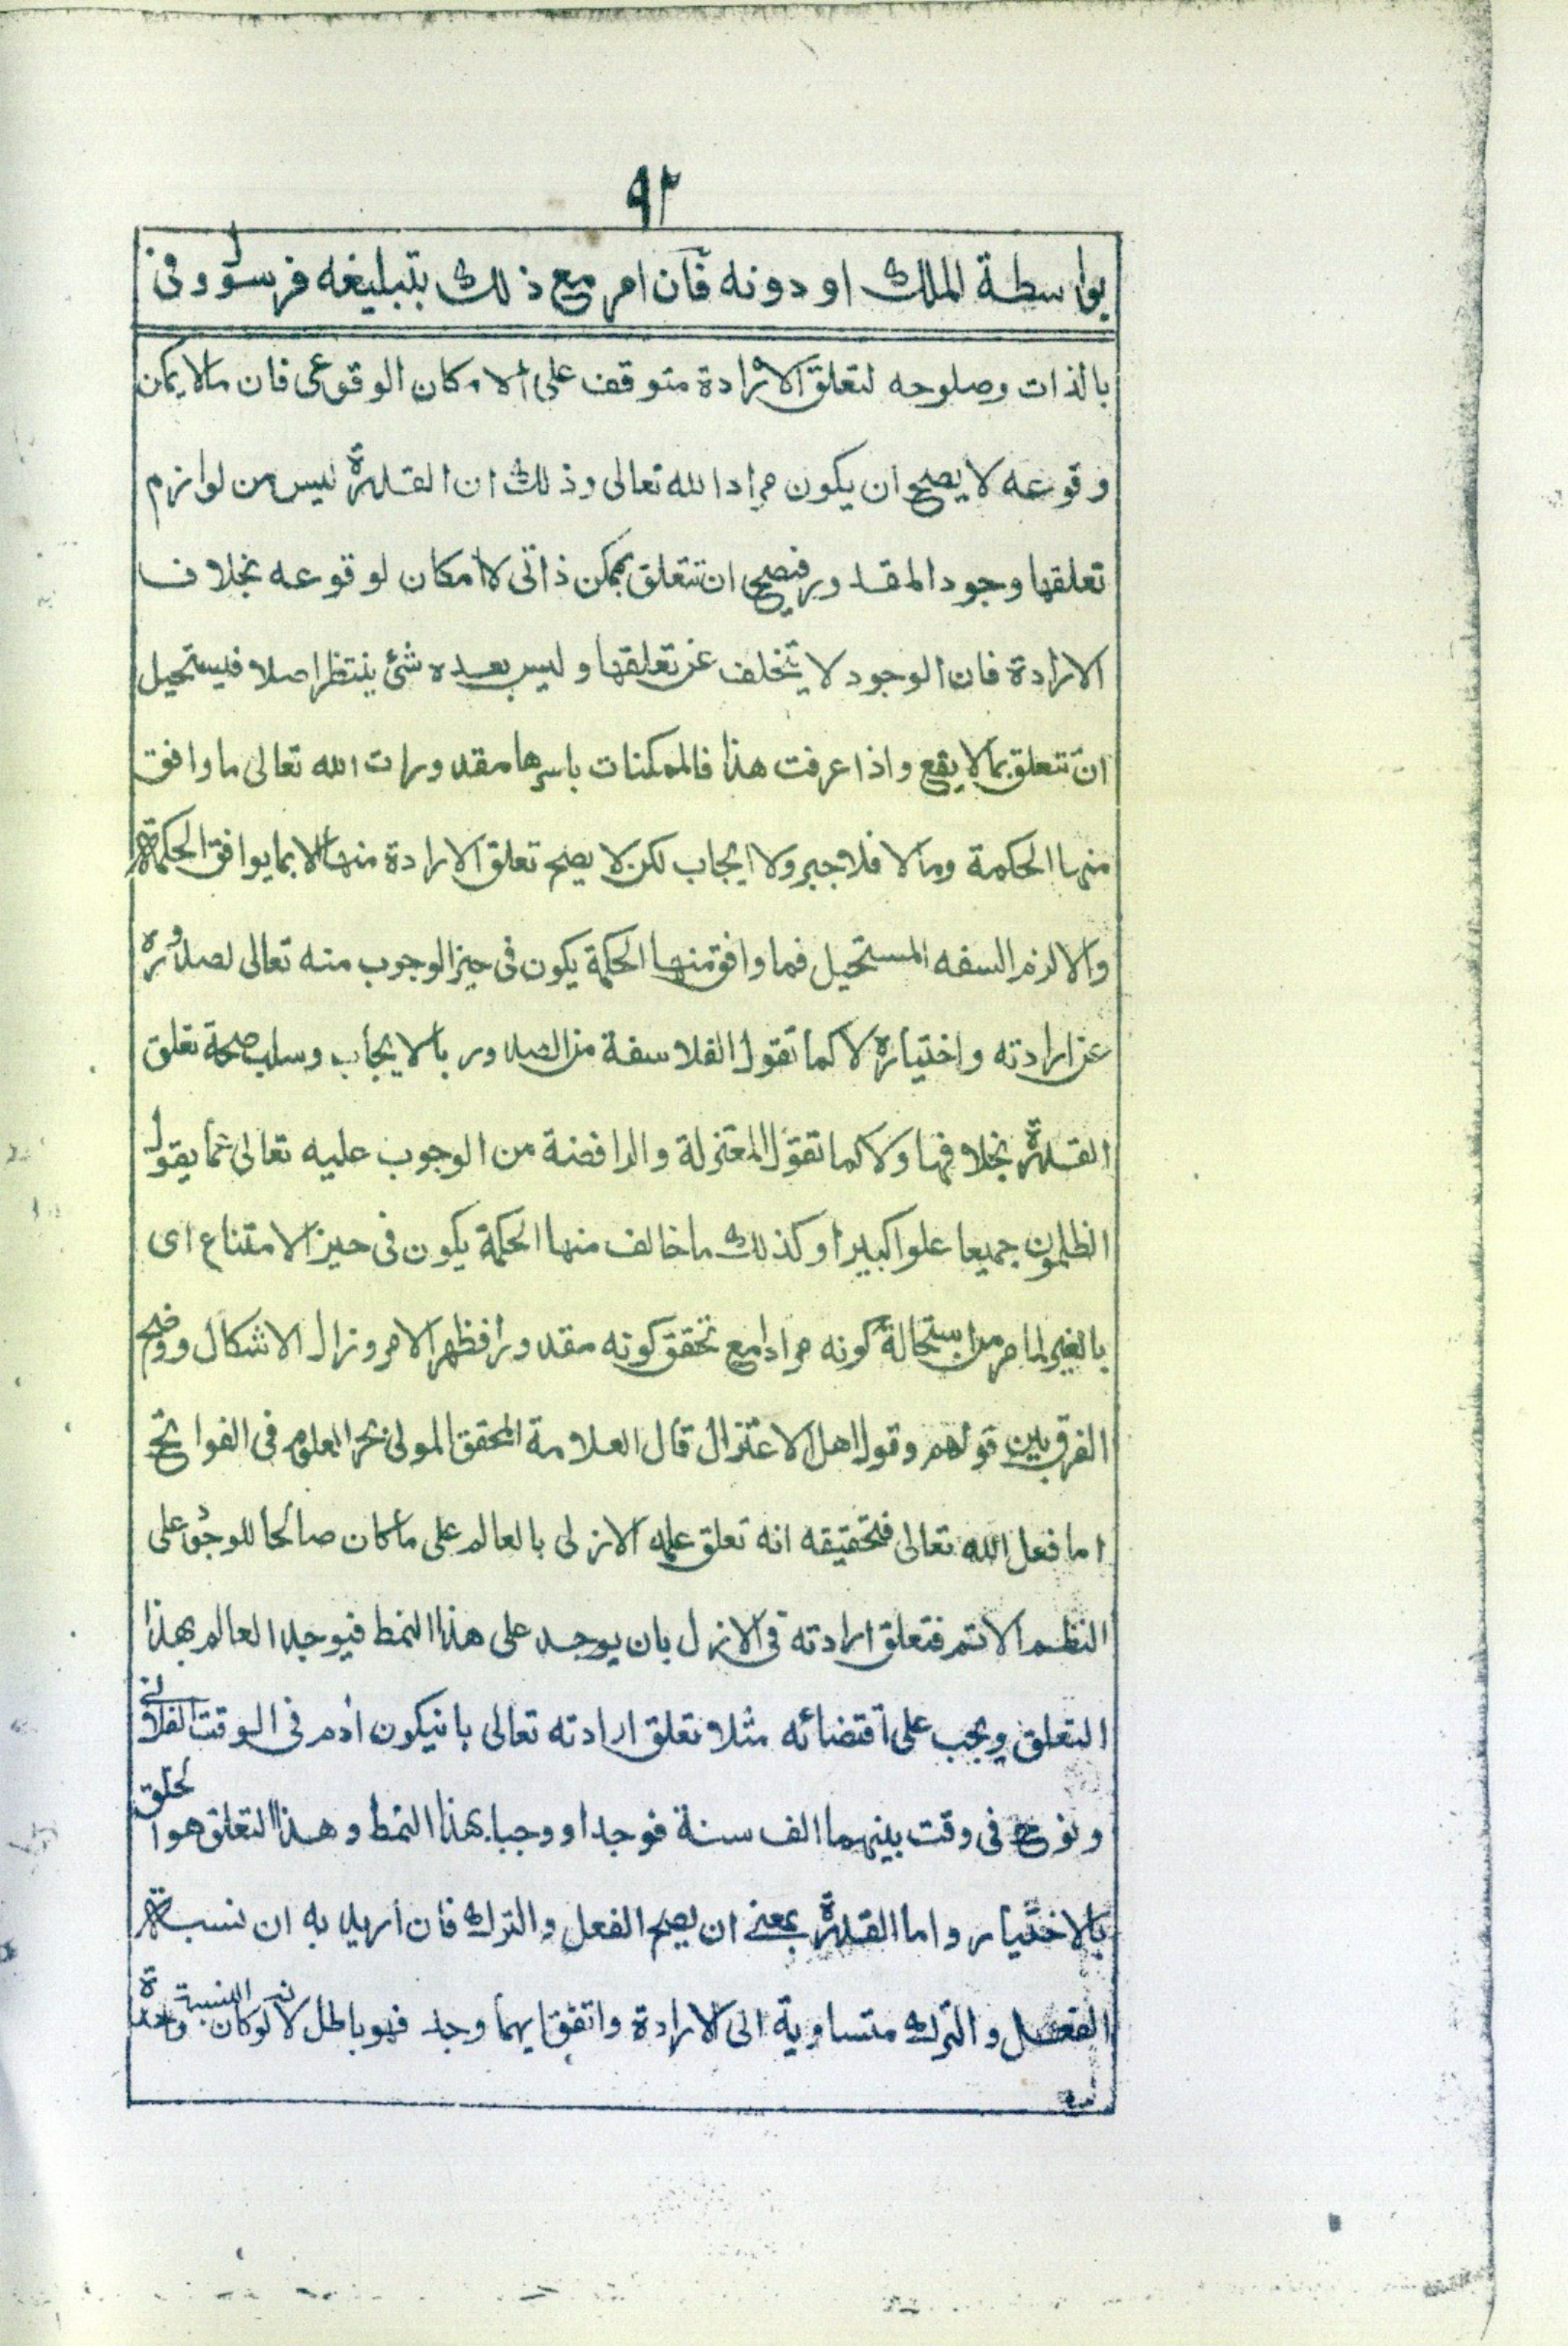 ٩٢
بواسطة الملك او دونه فان امر مع ذلك بتبليغه فرسول وفى
بالذات وصلوحه لتعلق الارادة متوقف على الامكان الوقوعى فان مالا يمكن
وقوعه لا يصح ان يكون مراد الله تعالى وذلك ان القدرة ليس من لوازم
تعلقها وجود المقدور فيصح ان تتعلق بممكن ذاتى لا امكان لوقوعه بخلاف
الارادة فان الوجود لا يتخلف عن تعلقها وليس بعده شئ ينتظر اصلا فيستحيل
ان تتعلق بما لا يقع واذا عرفت هذا فالممكنات باسرها مقدورات الله تعالى ما وافق
منها الحكمة وما لا فلا جبر ولا ايجاب لكن لا يصح تعلق الارادة منها الا بما يوافق الحكمة
والا لزم السفه المستحيل فما وافق منها الحكمة يكون فى حيز الوجوب منه تعالى لصدوره
عن ارادته واختياره لا كما تقول الفلاسفة من الصدور بالايجاب وسلب صحة تعلق
القدرة بخلافها ولا كما تقول المعتزلة والرافضة من الوجوب عليه تعالى عما يقول
الظلمون جميعا علوا كبيرا وكذلك ما خالف منها الحكمة يكون فى حيز الامتناع اى
بالغير لما مر من استحالة كونه مرادا مع تحقق كونه مقدورا فظهر الامر وزال الاشكال ووضح
الفرق بين قولهم وقول اهل الاعتزال قال العلامة المحقق المولى بحر العلوم فى الفواتح
اما فعل الله تعالى فتحقيقه انه تعلق علمه الازلى بالعالم على ما كان صالحا للوجود على
النظم الاتم فتعلق ارادته فى الازل بان يوجد على هذا النمط فيوجد العالم بهذا
التعلق ويجب على اقتضائه مثلا تعلق ارادته تعالى بانيكون ادم فى الوقت الفلانى
ونوح فى وقت بينهما الف سنة فوجدا ووجبا بهذا النمط وهذا التعلق هو الخلق
بالاختيار واما القدرة بمعنى ان يصح الفعل والترك فان اريد به ان نسبة
الفعل والترك متساوية الى الارادة واتفق ايهما وجد فهو باطل لانه لو كان النسبة واحدة